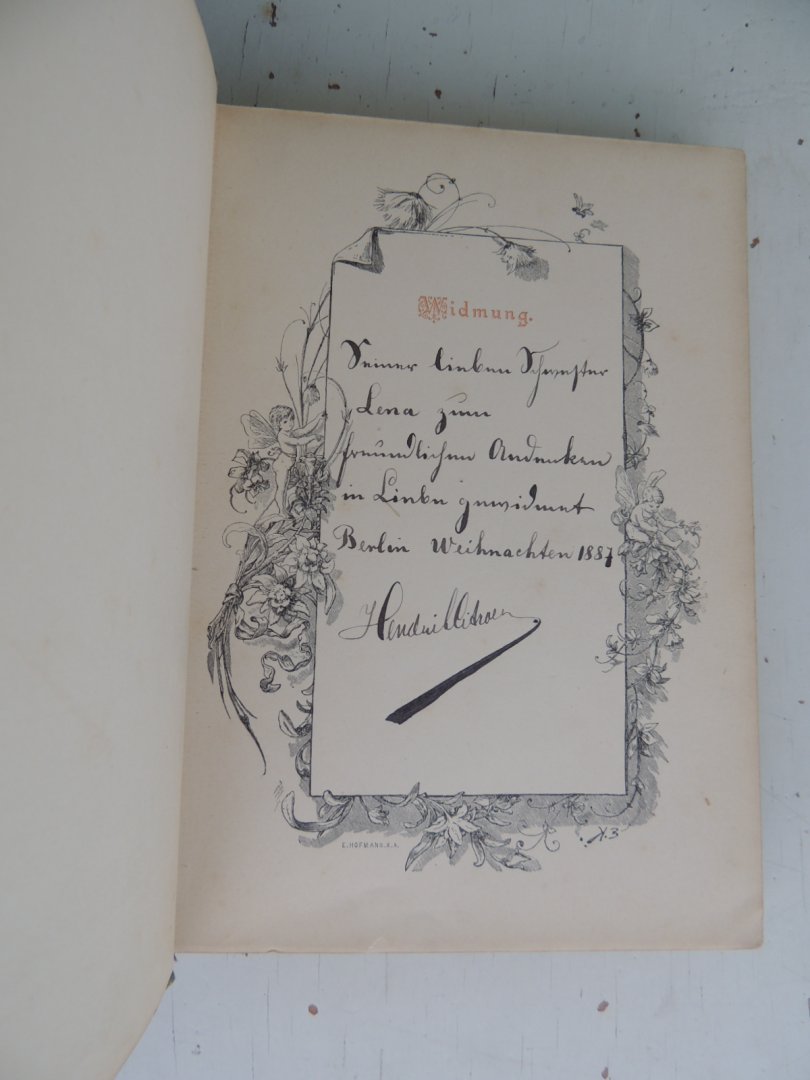 Widmung.
Seiner lieben Schwester
Lena zum
freundlichen Andenken
in Liebe gewidmet
Berlin Weihnachten 1887
E. HOFMANN. X. A.